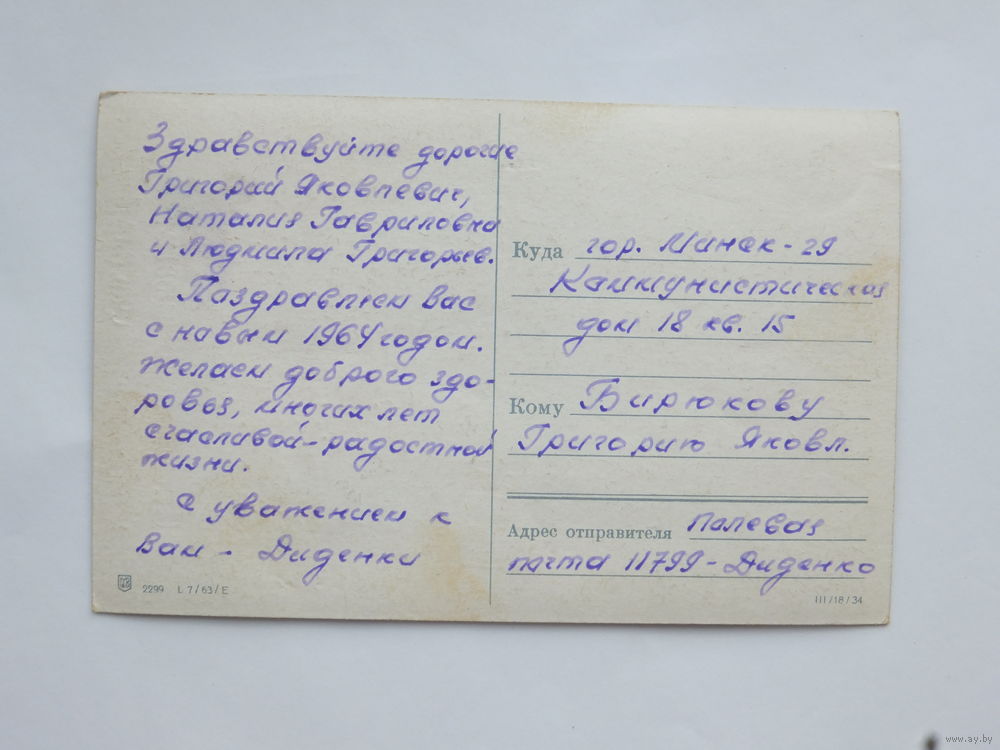 Здравствуйте дорогие
Григорий Яковлевич,
Наталия Гавриловна
и Людмила Григорьев.
Паздравляем вас
с новым 1964 годом.
Желаем доброго здо-
ровья, многих лет
счасливой-радостной
жизни.
С уважением к
Вам - Диденки
2299 L 7/63/E
Куда гор. Минск-29
Коммунистическая
дом 18 кв. 15
Кому Бирюкову
Григорию Яковл.
Адрес отправителя Полевая
почта 11799-Диденко
III/18/34
www.ay.by